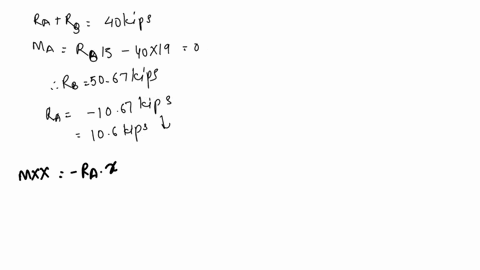 RA + RB = 40 kips
MA = RB 15 - 40X19 = 0
∴ RB = 50.67 kips
RA = -10.67 kips
= 10.6 kips ↓
MXX = -RA.x